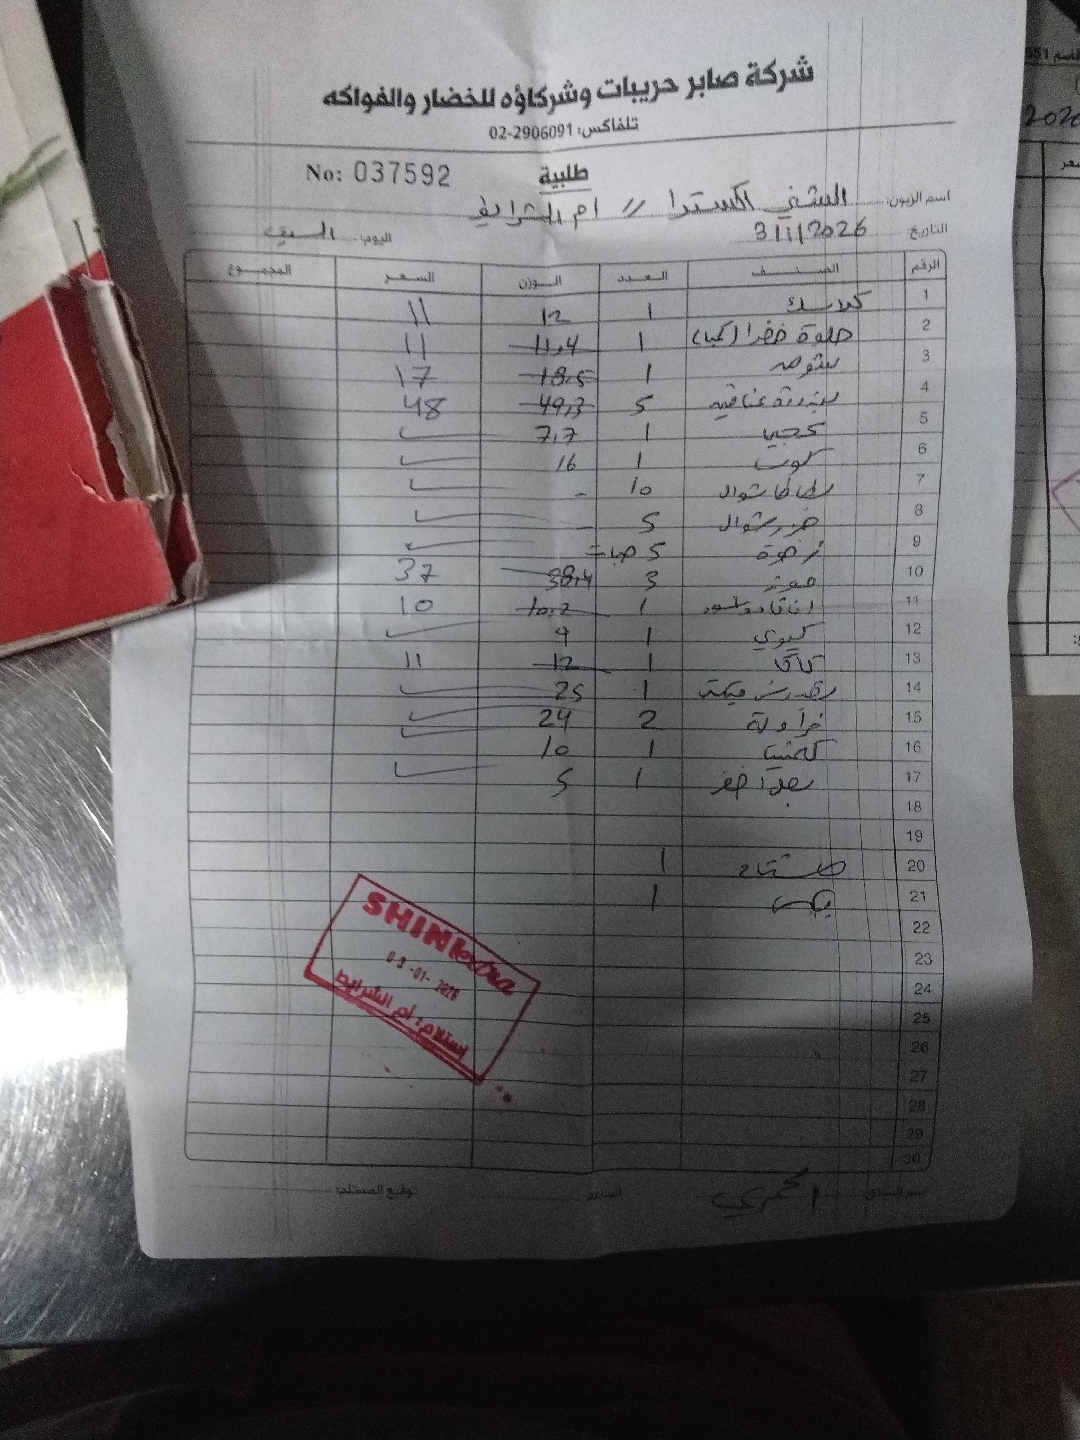 شركة صابر حريبات وشركاؤه للخضار والفواكه
تلفاكس: 02-2906091
No: 037592
طلبية
اسم الزبون: الشني اكسترا // ام الشرايط
التاريخ: 3/1/2026 اليوم: السبت
الرقم الصنف العدد الوزن السعر المجموع
1 كلاسك 1 12 11
2 حلوة خضرا (كبا) 1 11,4 11
3 بتومر 1 18,5 17
4 بندورة عناقيد 5 49,3 48
5 1 7,7
6 1 16
7 بطاطا شوال 10 -
8 جزر شوال 5 -
9 5 حبات
10 موز 3 38,4 37
11 1 10,2 10
12 كيوي 1 9
13 كاكا 1 12 11
14 1 25
15 فراولة 2 24
16 كلمنتينا 1 10
17 بصل اخضر 1 5
18
19
20 1
21 1
22
23
24
25
26
27
28
29
30
SHINI extra
03-01-2026
استلام: ام الشرايط
اسم السائق: العمري الساعة توقيع المستلم: